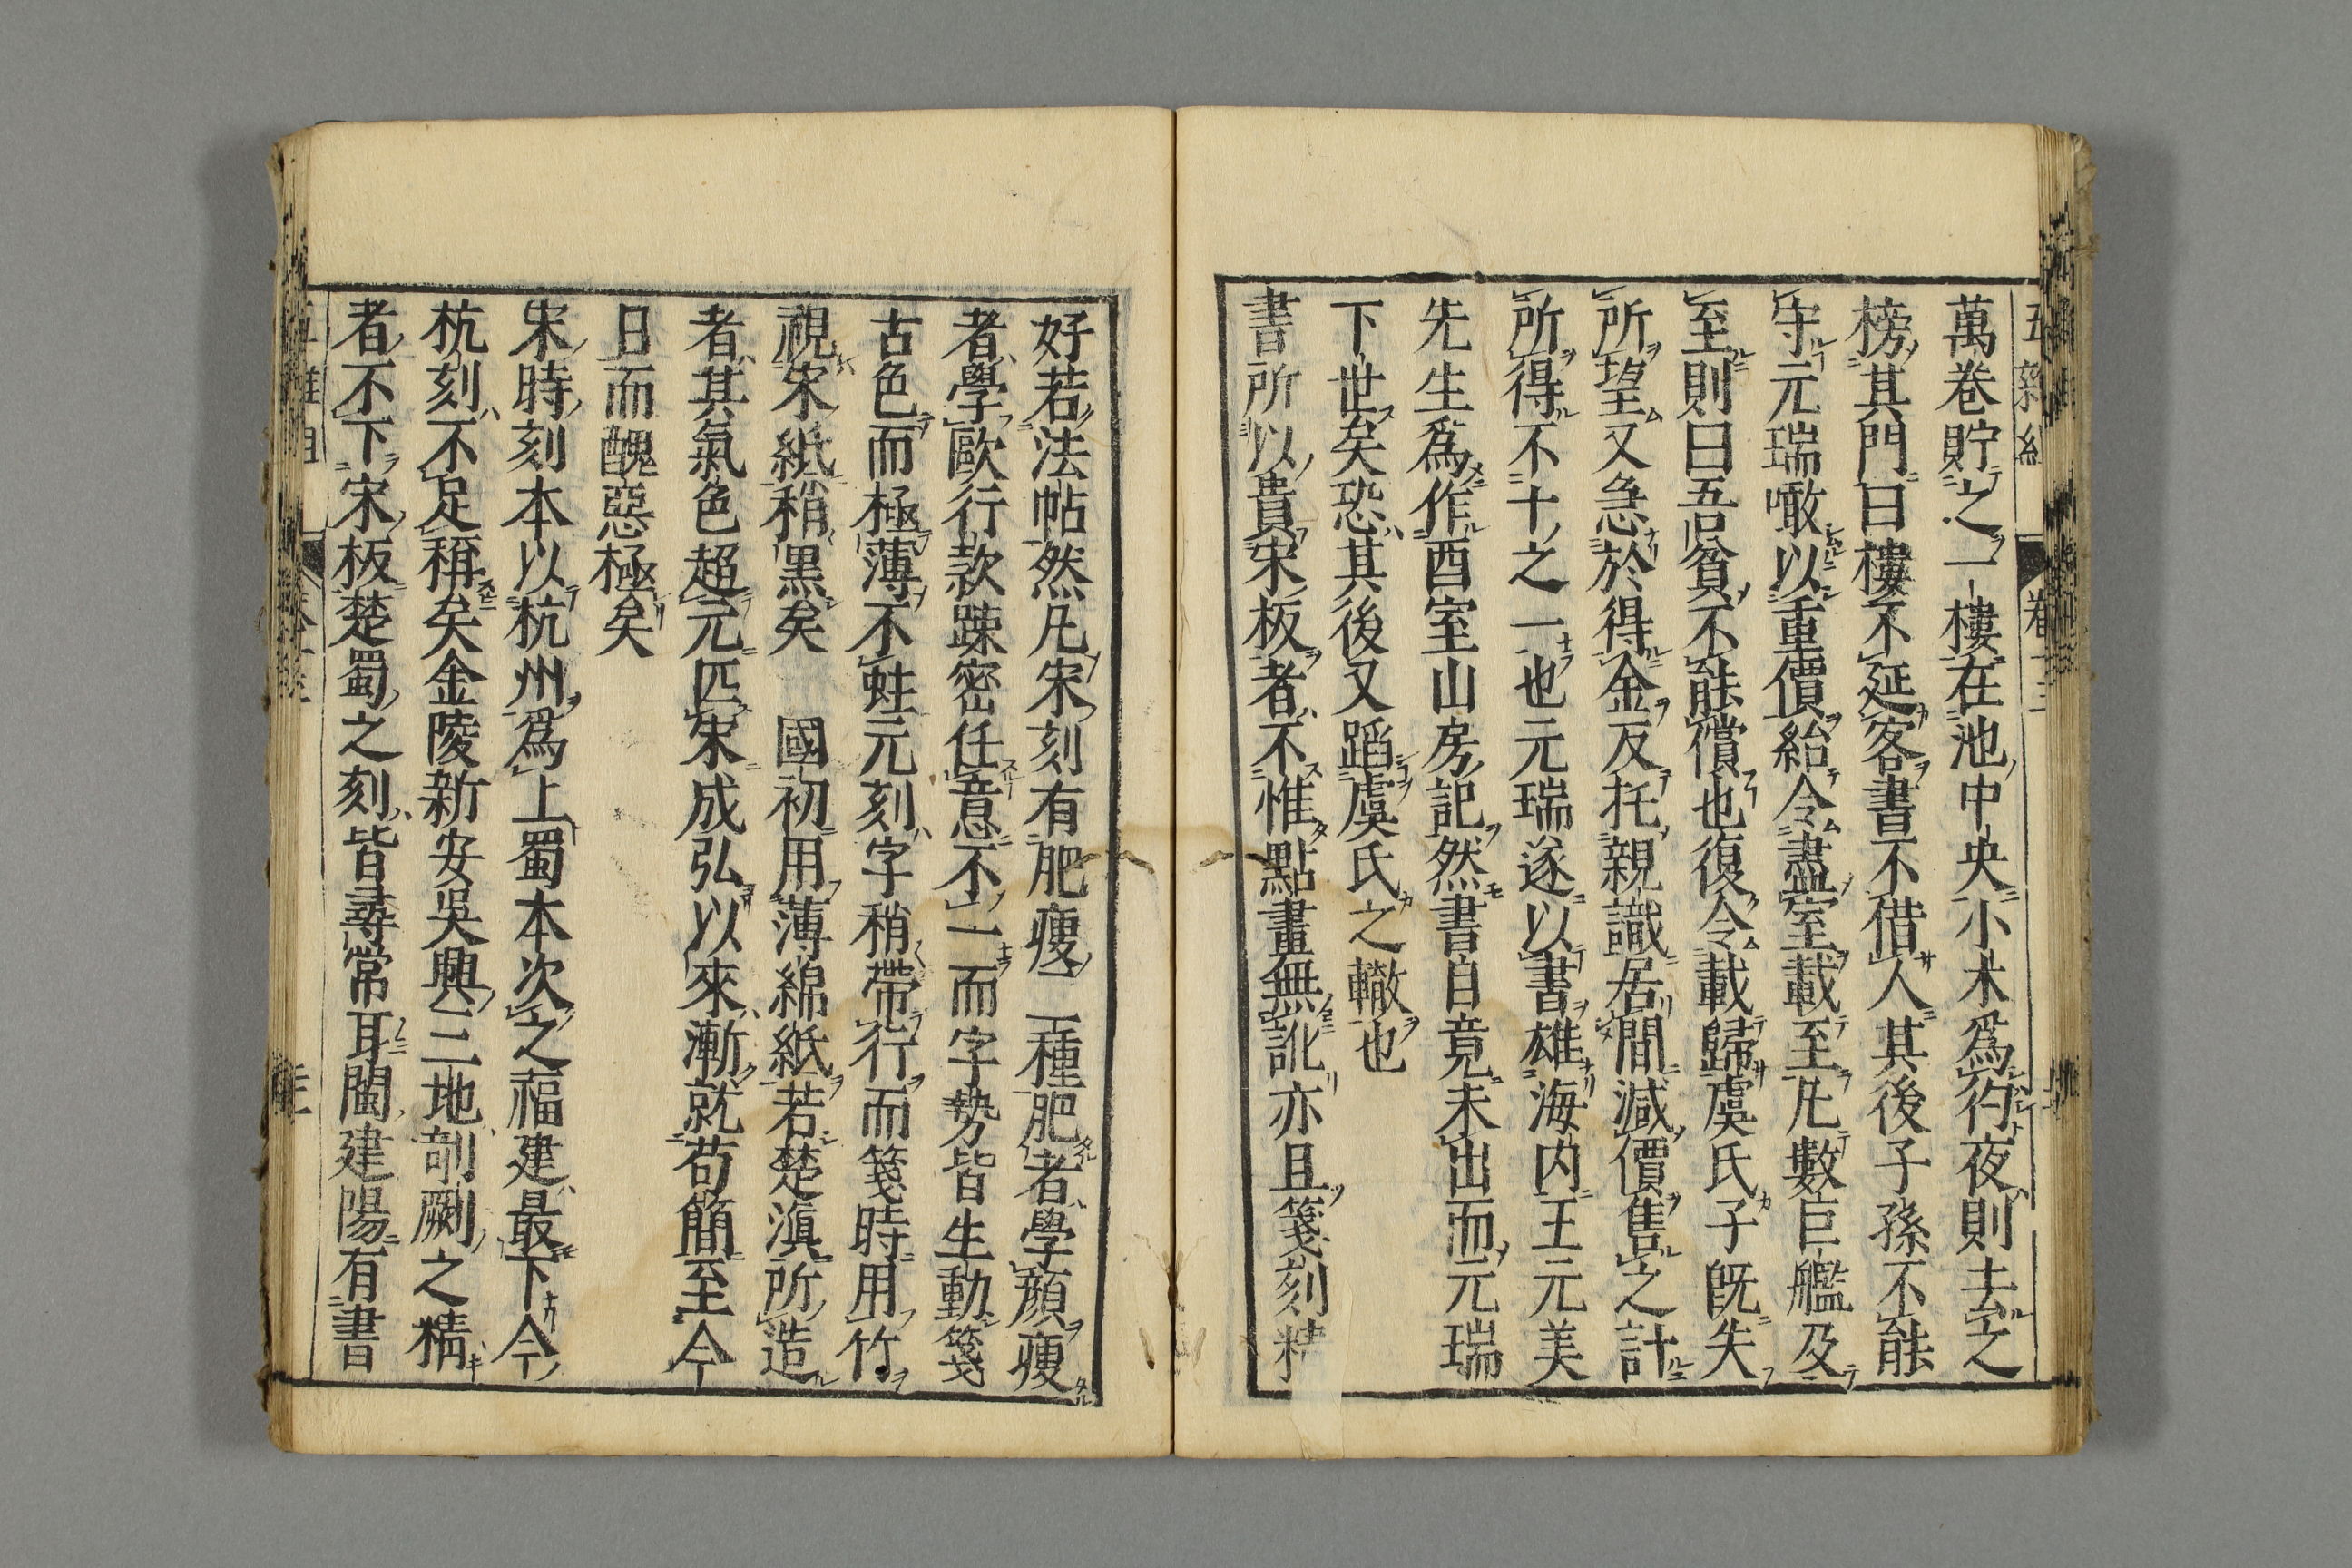 萬卷貯之一樓在池中央小木爲彴夜則去之
榜其門曰樓不延客書不借人其後子孫不能
守元瑞噉以重價紿令盡室載至凡數巨艦及
至則曰吾貧不能償也復令載歸虞氏子旣失
所望又急於得金反托親識居間減價售之計
所得不十之一也元瑞遂以書雄海内王元美
先生爲作酉室山房記然書自竟未出而元瑞
下世矣恐其後又蹈虞氏之轍也
書所以貴宋板者不惟點畫無訛亦且箋刻精
好若法帖然凡宋刻有肥瘦二種肥者學顔瘦
者學歐行款踈密任意不一而字勢皆生動箋
古色而極薄不蛀元刻字稍帶行而箋時用竹
視宋紙稍黒矣　國初用薄綿紙若楚滇所造
者其氣色超元匹宋成弘以來漸就苟簡至今
日而醜惡極矣
宋時刻本以杭州爲上蜀本次之福建最下今
杭刻不足稱矣金陵新安吳興三地剞劂之精
者不下宋板楚蜀之刻皆尋常耳閩建陽有書